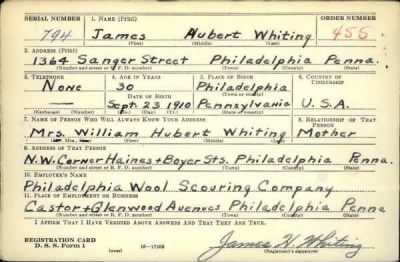 SERIAL NUMBER 1. NAME (Print) ORDER NUMBER
794 James Hubert Whiting 455
(First) (Middle) (Last)
2. ADDRESS (Print)
1364 Sanger Street Philadelphia Penna.
(Number and street or R. F. D. number) (Town) (County) (State)
3. TELEPHONE 4. AGE IN YEARS 5. PLACE OF BIRTH 6. COUNTRY OF CITIZENSHIP
None 30 Philadelphia
DATE OF BIRTH (Town or county)
— — Sept. 23 1910 Pennsylvania U.S.A.
(Exchange) (Number) (Mo.) (Day) (Yr.) (State or country)
7. NAME OF PERSON WHO WILL ALWAYS KNOW YOUR ADDRESS 8. RELATIONSHIP OF THAT PERSON
Mrs. William Hubert Whiting Mother
(Mr., Mrs., Miss) (First) (Middle) (Last)
9. ADDRESS OF THAT PERSON
N.W. Corner Haines + Boyer Sts. Philadelphia Penna.
(Number and street or R. F. D. number) (Town) (County) (State)
10. EMPLOYER'S NAME
Philadelphia Wool Scouring Company
11. PLACE OF EMPLOYMENT OR BUSINESS
Castor + Glenwood Avenues Philadelphia Penna
(Number and street or R. F. D. number) (Town) (County) (State)
I AFFIRM THAT I HAVE VERIFIED ABOVE ANSWERS AND THAT THEY ARE TRUE.
REGISTRATION CARD
D. S. S. Form 1 (over) 16—17105 James H Whiting
(Registrant's signature)